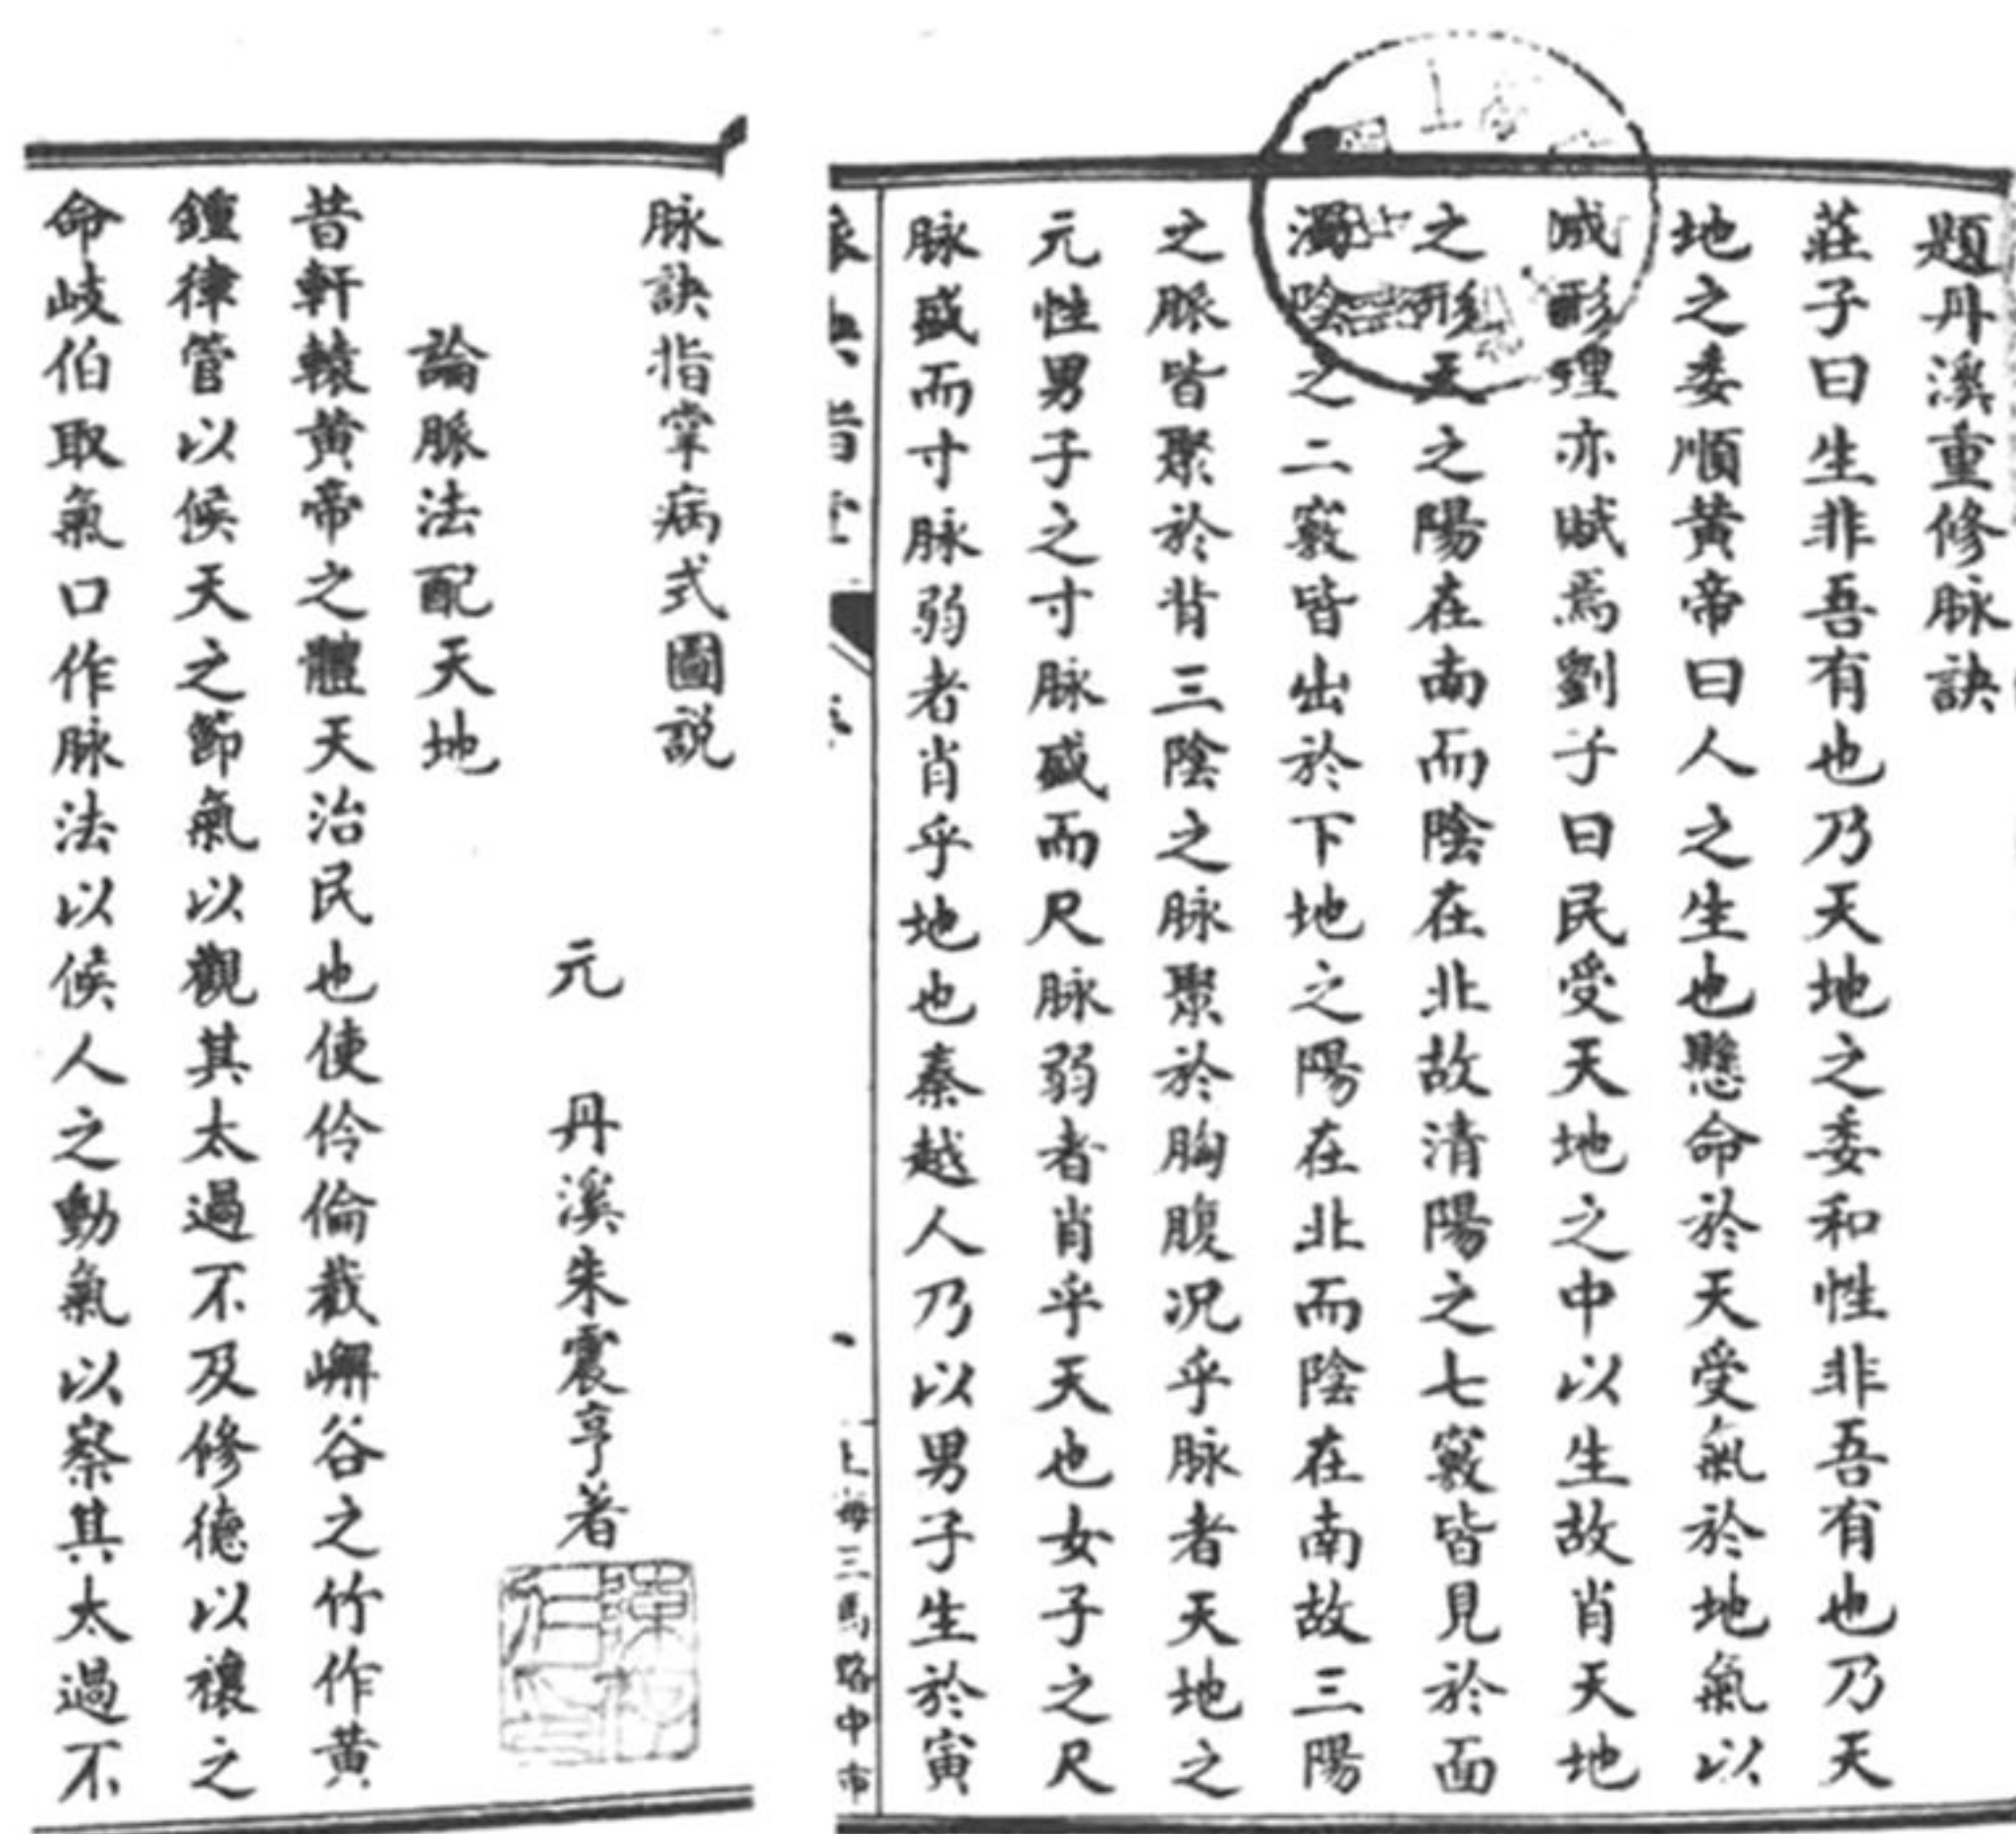 題丹溪重修脉訣
莊子曰生非吾有也乃天地之委和性非吾有也乃天
地之委順黃帝曰人之生也懸命於天受氣於地氣以
成形理亦賦焉劉子曰民受天地之中以生故肖天地
之形天之陽在南而陰在北故清陽之七竅皆見於面
濁陰之二竅皆出於下地之陽在北而陰在南故三陽
之脈皆聚於背三陰之脉聚於胸腹况乎脉者天地之
元性男子之寸脉盛而尺脉弱者肖乎天也女子之尺
脉盛而寸脉弱者肖乎地也秦越人乃以男子生於寅
上海三馬路中市
脉訣指掌病式圖説
元 丹溪朱震亨著
論脈法配天地
昔軒轅黃帝之體天治民也使伶倫截嶰谷之竹作黃
鐘律管以候天之節氣以觀其太過不及修德以禳之
命岐伯取氣口作脉法以候人之動氣以察其太過不